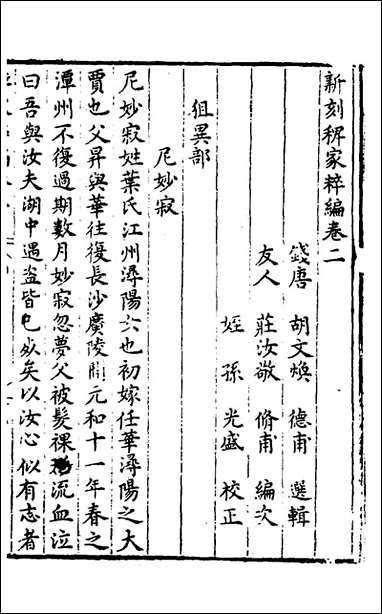 新刻稗家粹編卷二
錢唐　胡文煥　德甫　選輯
友人　莊汝敬　脩甫　編次
姪孫　光盛　校正
狙異部
尼妙寂
尼妙寂姓葉氏江州潯陽女也初嫁任華潯陽之大
賈也父昇與華往復長沙廣陵間元和十一年春之
潭州不復過期數月妙寂忽夢父被髮裸形流血泣
曰吾與汝夫湖中遇盗皆已死矣以汝心似有志者